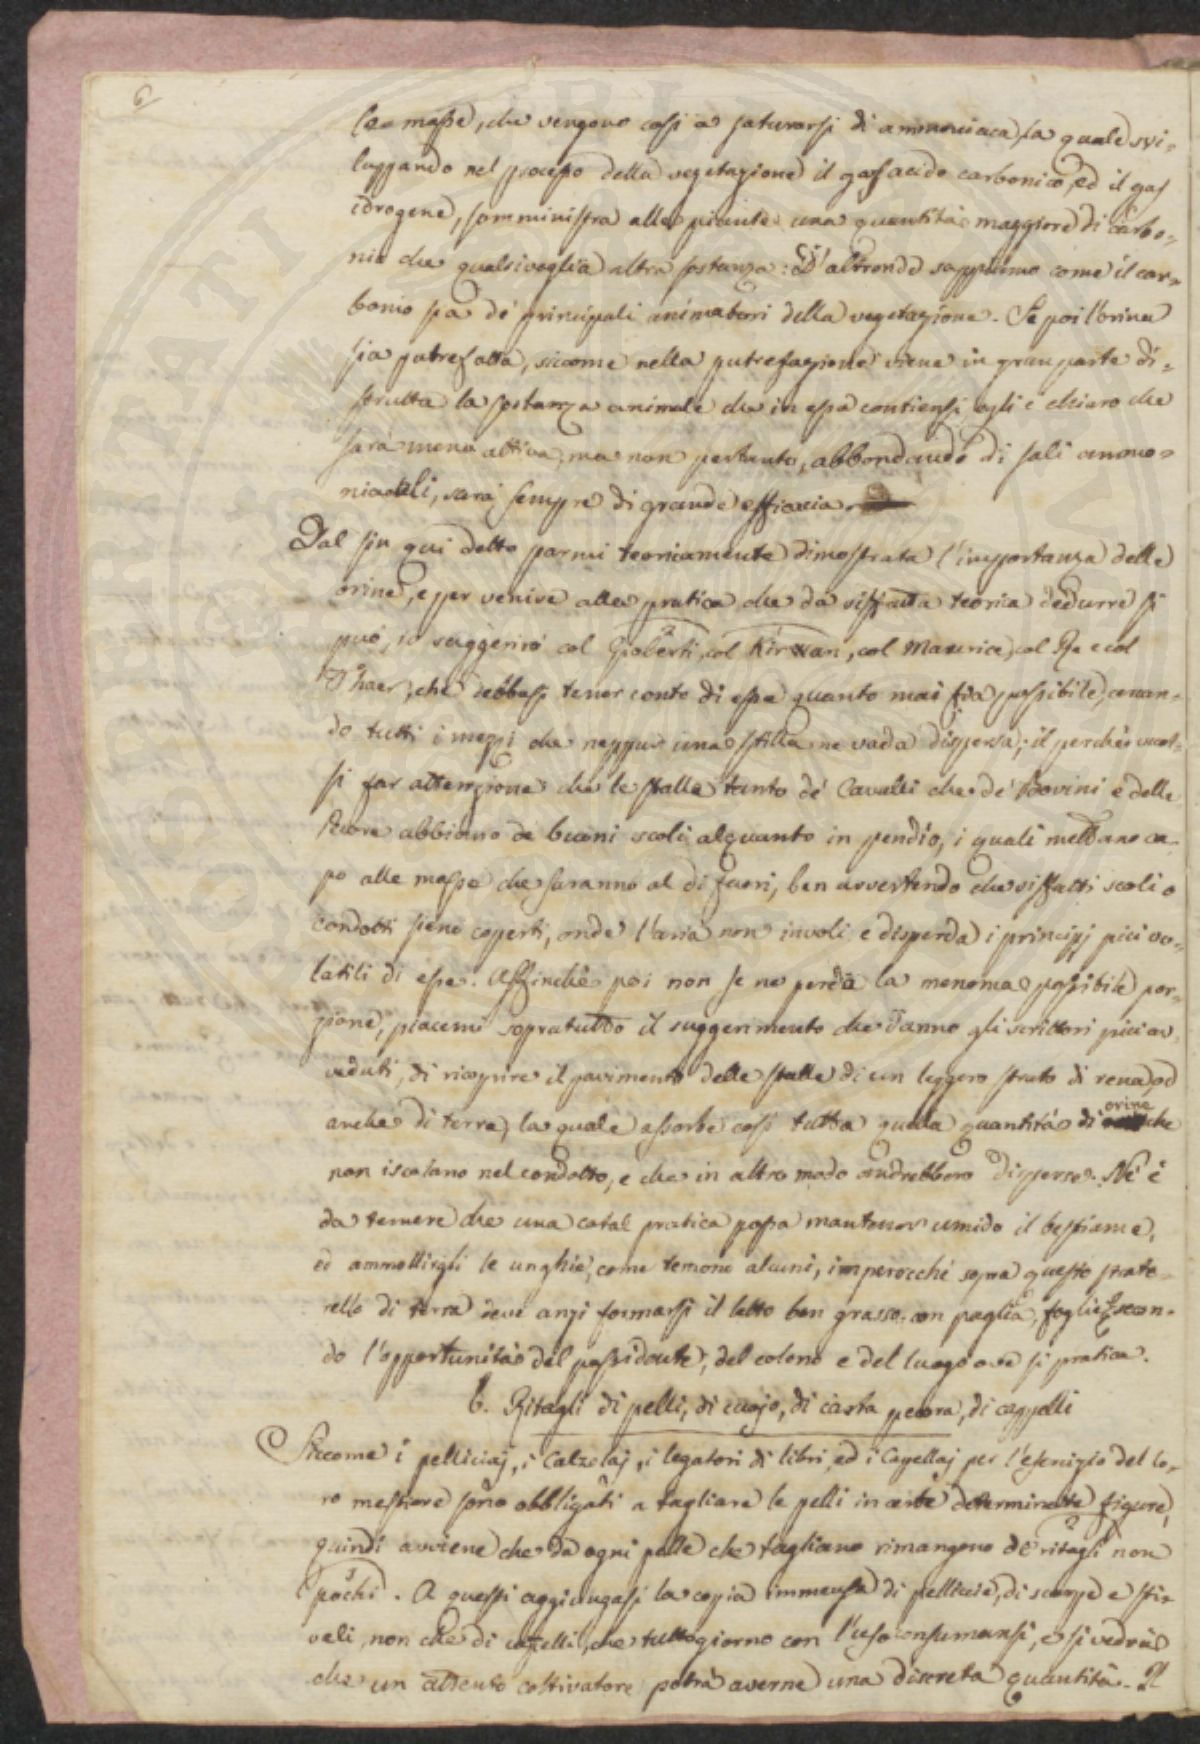 6
le masse, che vengono così a saturarsi di ammoniaca, la quale svi-
luppando nel processo della vegetazione il gas acido carbonico, ed il gas
idrogene, somministra alle piante una quantità maggiore di carbo-
nio che qualsivoglia altra sostanza: D'altronde sappiamo come il car-
bonio sia de' principali animatori della vegetazione. Se poi l'orina
sia putrefatta, siccome nella putrefazione viene in gran parte di-
strutta la sostanza animale che in essa contiensi egli è chiaro che
sarà meno attiva, ma non pertanto, abbondando di sali ammo-
niacali, sarà sempre di grande efficacia.
Dal sin qui detto parmi teoricamente dimostrata l'importanza delle
orine, e per venire alla pratica che da siffatta teoria dedurre si
può, io suggerirò col Gioberti, col Kirwan, col Maurice, col Re e col
Thaer, che debbasi tener conto di esse quanto mai sia possibile, cercan-
do tutti i mezzi che neppur una stilla ne vada dispersa; il perchè vuol-
si far attenzione che le stalle tanto de' Cavalli che de' Bovini e delle
Pecore abbiano de buoni scoli, alquanto in pendio, i quali mettano ca-
po alle masse che saranno al di fuori, ben avvertendo che siffatti scoli o
condotti sieno coperti, onde l'aria non involi e disperda i principj più vo-
latili di esse. Affinchè poi non se ne perda la menoma possibile por-
zione, piacemi sopratutto il suggerimento che danno gli scrittori più av-
veduti, di ricoprire il pavimento delle stalle di un leggero strato di rena, od
anche di terra, la quale assorbe così tutta quella quantità di orina che
non iscolano nel condotto, e che in altro modo andrebbero disperse. Nè è
da temere che una cotal pratica possa mantener umido il bestiame,
ed ammollirgli le unghie, come temono alcuni, imperocchè sopra questo strate-
rello di terra deve anzi formarsi il letto ben grasso con paglia, foglie secon-
do l'opportunità del possidente, del colono e del luogo ove si pratica.
6. Ritagli di pelli, di cuojo, di carta pecora, di cappelli
Siccome i pelliciaj, i Calzolaj, i legatori di libri, ed i Capellaj per l'esercizio del lo-
ro mestiere sono obbligati a tagliare le pelli in certe determinate figure,
quindi avviene che da ogni pelle che tagliano rimangono de' ritagli non
pochi. A questi aggiungasi la copia immensa di pelliccie, di scarpe e sti-
vali, non che di capelli, che tuttogiorno con l'uso consumansi, e si vedrà
che un attento coltivatore potrà averne una discreta quantità. Il